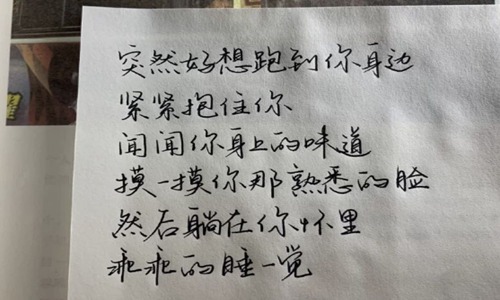 突然好想跑到你身边
紧紧抱住你
闻闻你身上的味道
摸一摸你那熟悉的脸
然后躺在你怀里
乖乖的睡一觉